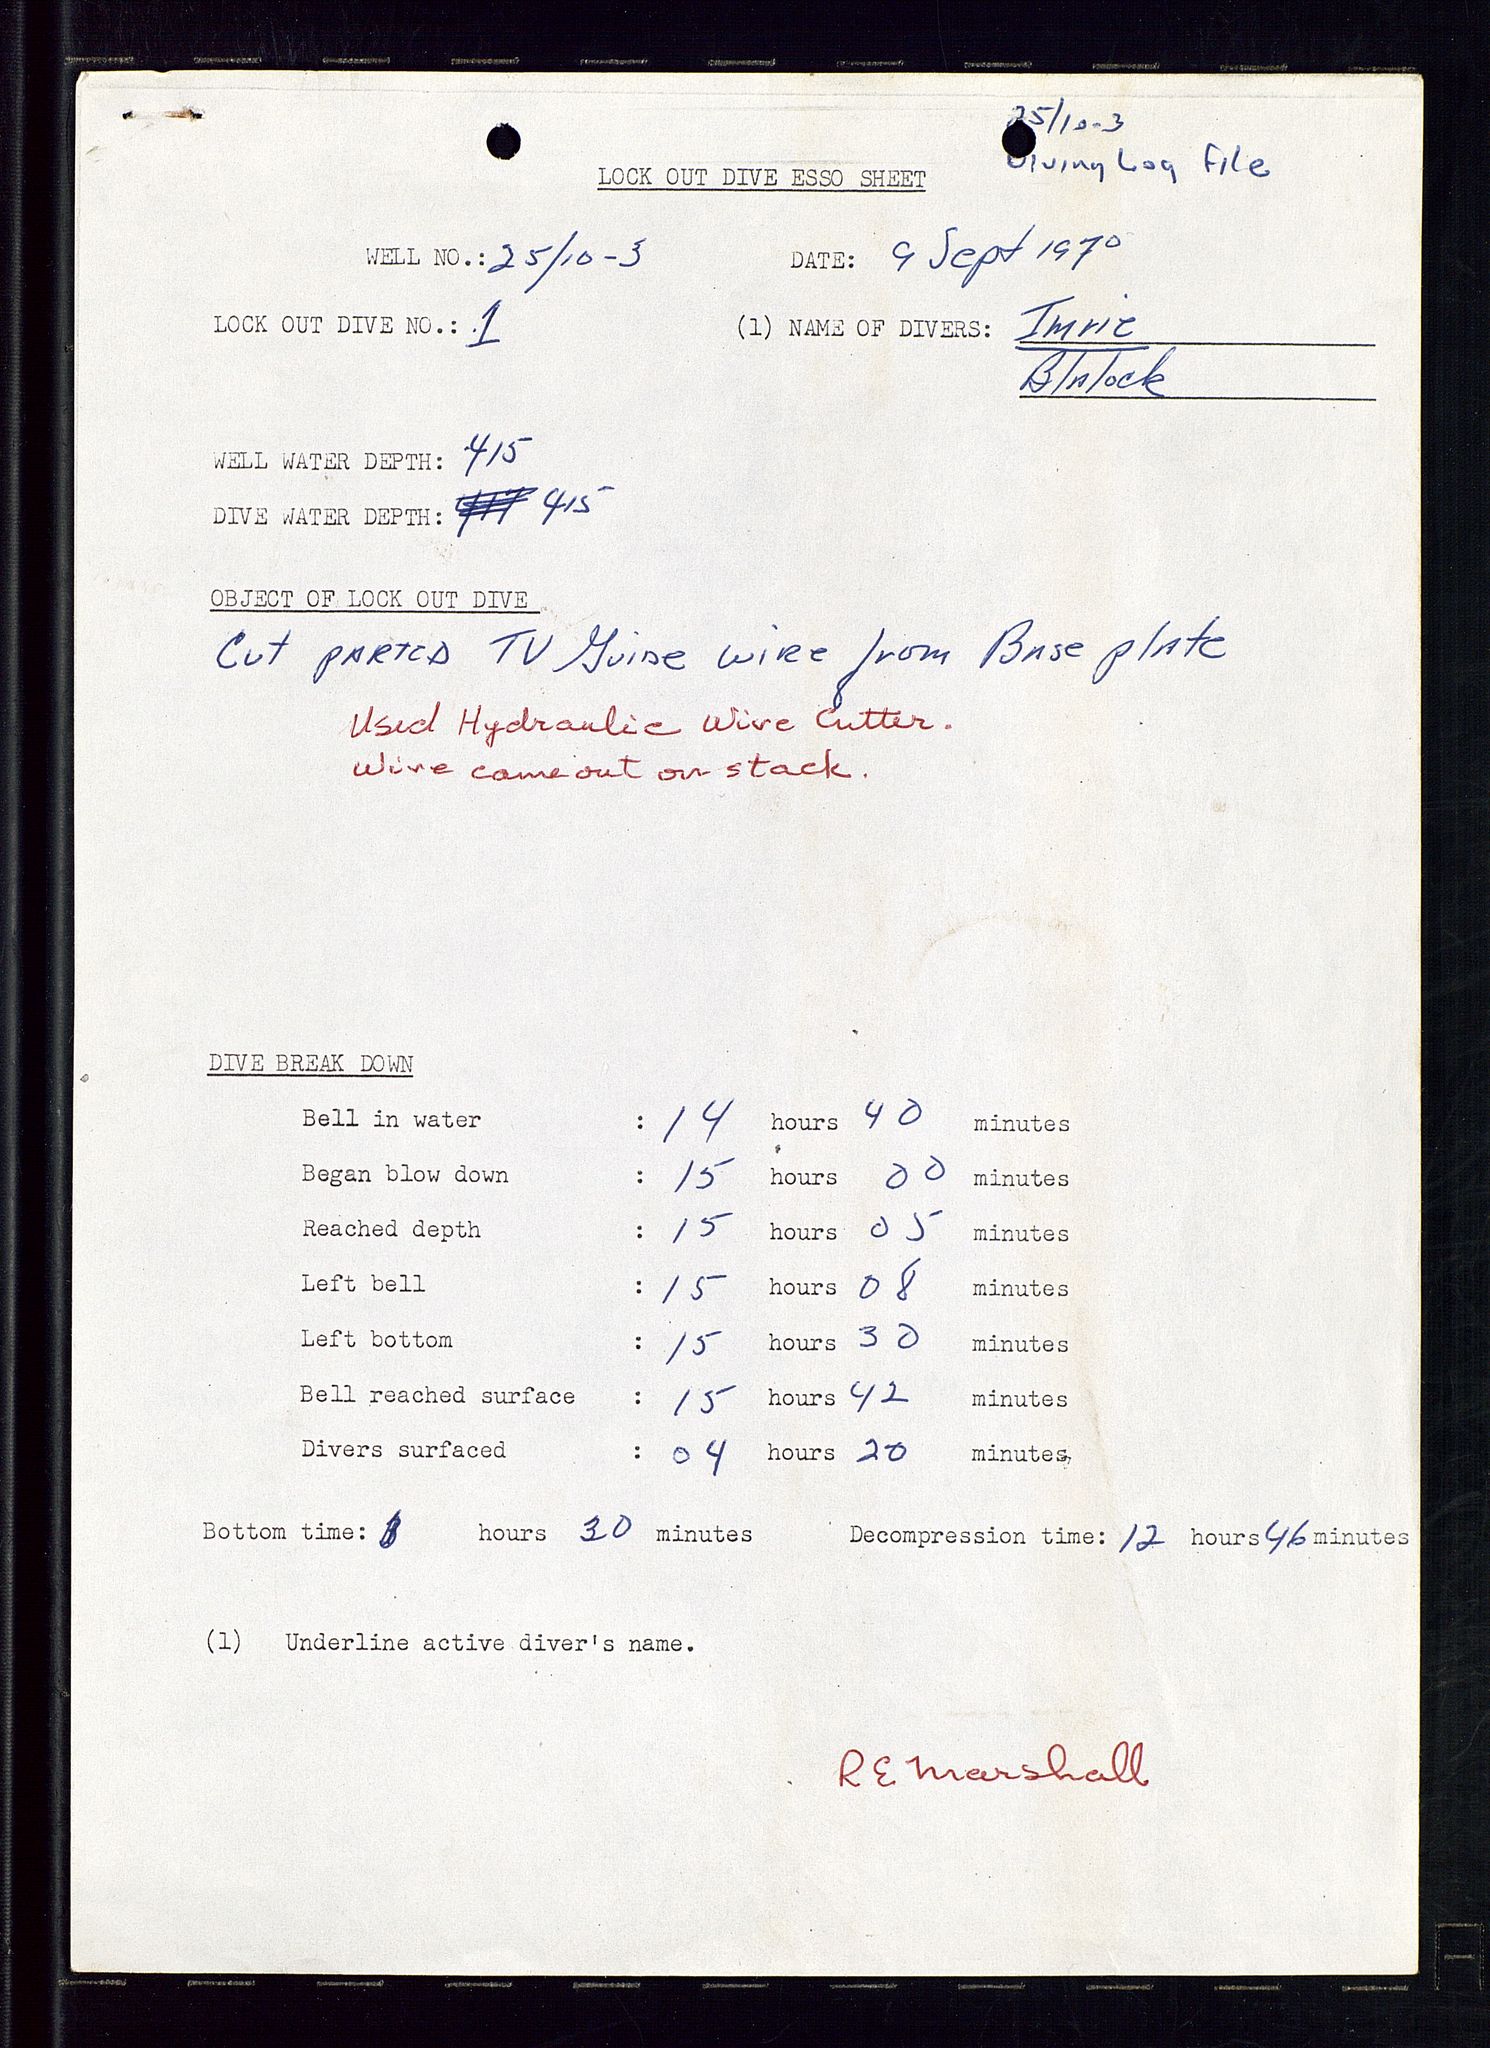 25/10-3
Diving Log File
LOCK OUT DIVE ESSO SHEET
WELL NO.: 25/10-3 DATE: 9 Sept 1970
LOCK OUT DIVE NO.: 1 (1) NAME OF DIVERS: Imrie
Blalock
WELL WATER DEPTH: 415
DIVE WATER DEPTH: 415
OBJECT OF LOCK OUT DIVE
Cut PARTED TV Guide wire from Base plate
Used Hydraulic Wire Cutter.
Wire came out on stack.
DIVE BREAK DOWN
Bell in water : 14 hours 40 minutes
Began blow down : 15 hours 00 minutes
Reached depth : 15 hours 05 minutes
Left bell : 15 hours 08 minutes
Left bottom : 15 hours 30 minutes
Bell reached surface : 15 hours 42 minutes
Divers surfaced : 04 hours 20 minutes
Bottom time: hours 30 minutes Decompression time: 12 hours 46 minutes
(1) Underline active diver's name.
R E Marshall